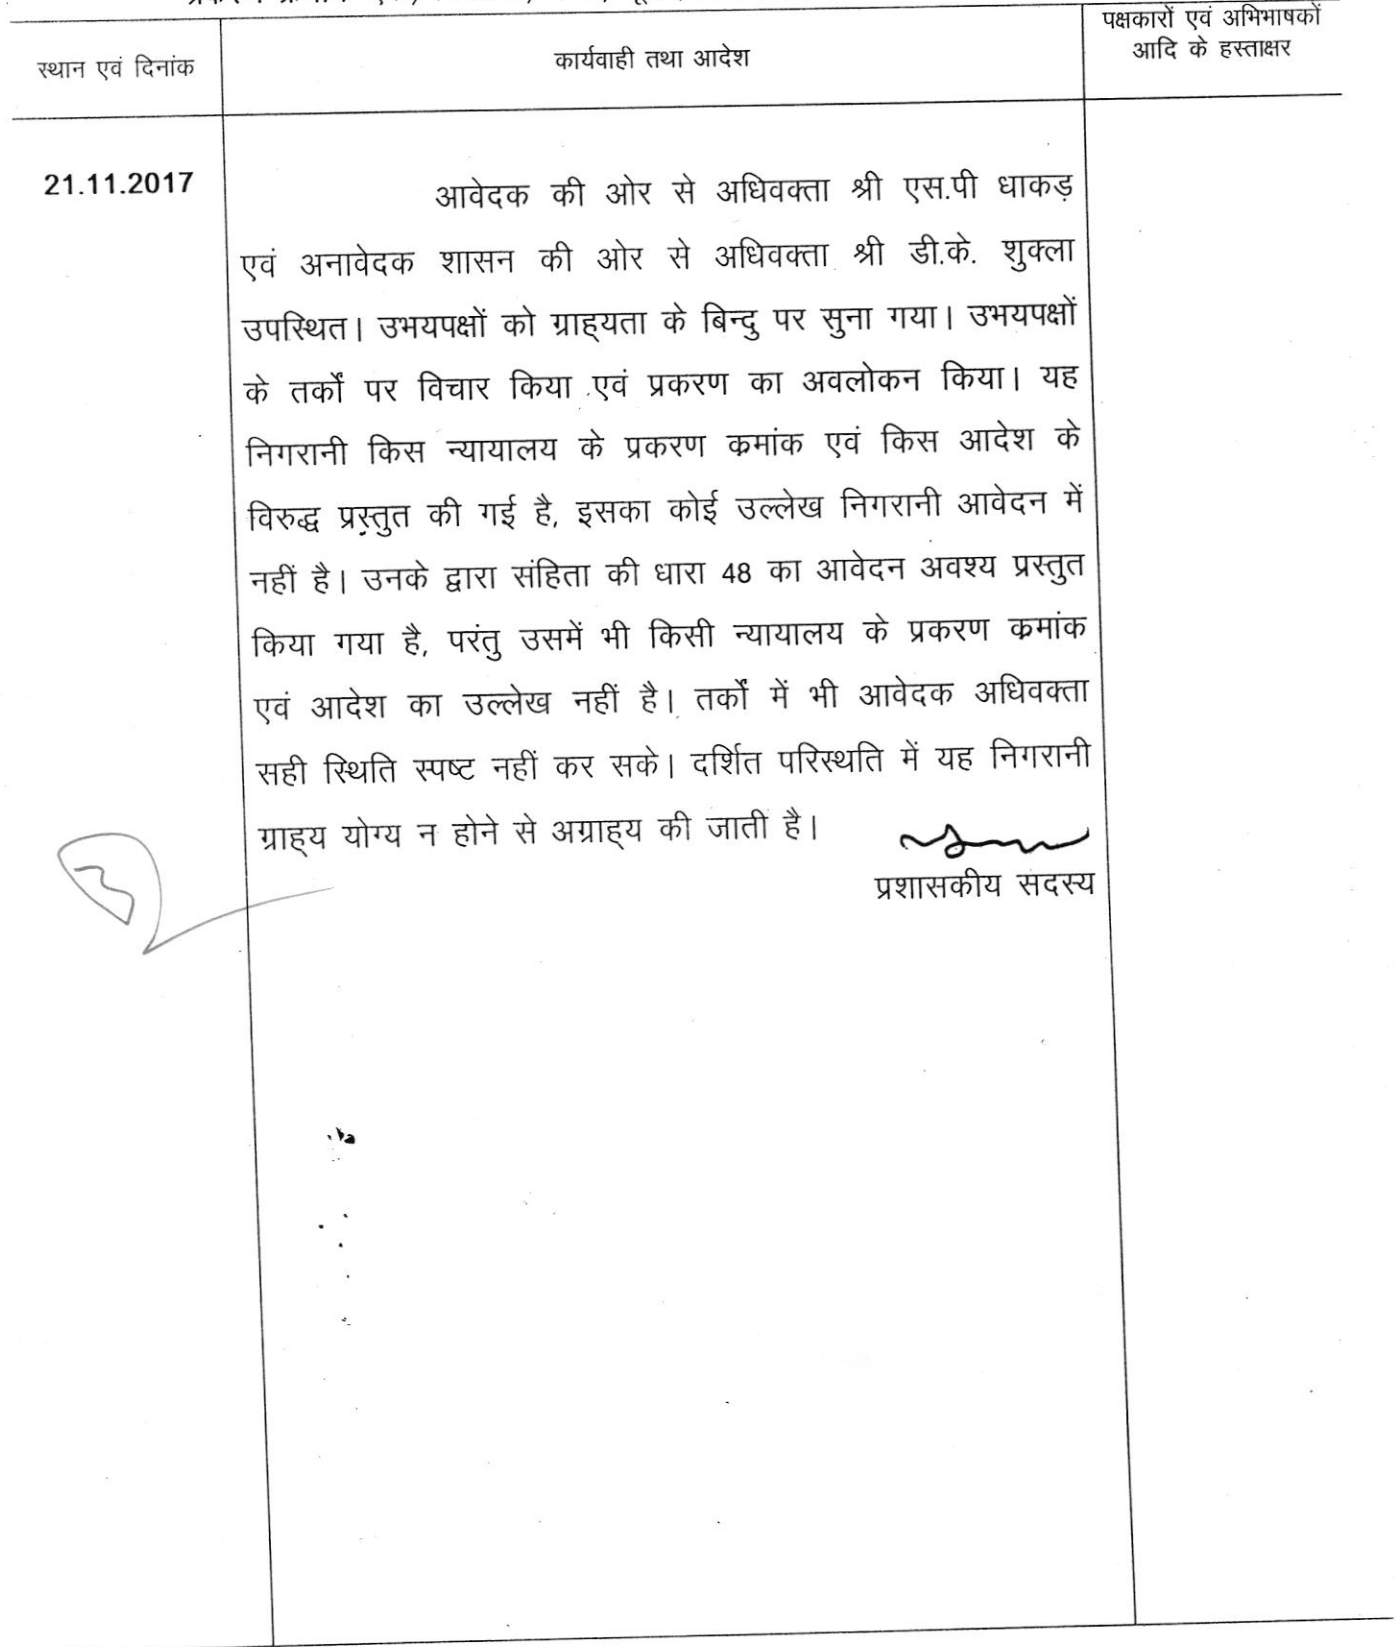 स्थान एवं दिनांक
कार्यवाही तथा आदेश
पक्षकारों एवं अभिभाषकों
आदि के हस्ताक्षर
21.11.2017
आवेदक की ओर से अधिवक्ता श्री एस.पी धाकड़
एवं अनावेदक शासन की ओर से अधिवक्ता श्री डी.के. शुक्ला
उपस्थित। उभयपक्षों को ग्राह्यता के बिन्दु पर सुना गया। उभयपक्षों
के तर्कों पर विचार किया एवं प्रकरण का अवलोकन किया। यह
निगरानी किस न्यायालय के प्रकरण क्रमांक एवं किस आदेश के
विरुद्ध प्रस्तुत की गई है, इसका कोई उल्लेख निगरानी आवेदन में
नहीं है। उनके द्वारा संहिता की धारा 48 का आवेदन अवश्य प्रस्तुत
किया गया है, परंतु उसमें भी किसी न्यायालय के प्रकरण क्रमांक
एवं आदेश का उल्लेख नहीं है। तर्कों में भी आवेदक अधिवक्ता
सही स्थिति स्पष्ट नहीं कर सके। दर्शित परिस्थति में यह निगरानी
ग्राह्य योग्य न होने से अग्राह्य की जाती है।
प्रशासकीय सदस्य